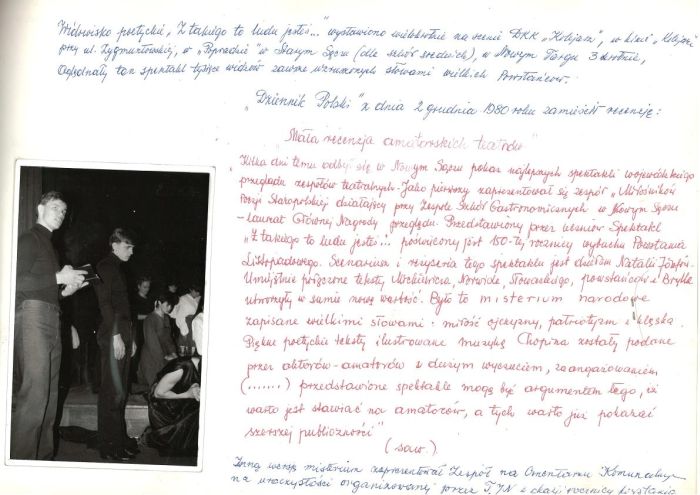 Widowisko poetyckie „Z takiego to ludu jesteś..." wystawiono wielokrotnie na scenie DKK „Kolejarz", w kinie „Kolejarz"
przy ul. Zygmuntowskiej, w „Popradzie" w Starym Sączu (dla szkół średnich), w Nowym Targu 3 krotnie,
Oglądnęły ten spektakl tysiące widzów zawsze wzruszonych słowami wielkich Powstańców.
„Dziennik Polski" z dnia 2 grudnia 1980 roku zamieścił recenzję:
„Mała recenzja amatorskich teatrów"
„Kilka dni temu odbył się w Nowym Sączu pokaz najlepszych spektakli wojewódzkiego
przeglądu zespołów teatralnych. Jako pierwszy zaprezentował się zespół „Miłośników
Poezji Staropolskiej działający przy Zespole Szkół Gastronomicznych w Nowym Sączu
– laureat Głównej Nagrody przeglądu. Przedstawiony przez uczniów Spektakl
„Z takiego to ludu jesteś..." poświęcony jest 150-tej rocznicy wybuchu Powstania
Listopadowego. Scenariusz i reżyseria tego spektaklu jest dziełem Natalii
Umiejętnie połączone teksty Mickiewicza, Norwida, Słowackiego, powstańców i Brylla
utworzyły w sumie nową wartość. Było to misterium narodowe
zapisane wielkimi słowami: miłość ojczyzny, patriotyzm i klęska.
Piękne poetyckie teksty ilustrowane muzyką Chopina zostały podane
przez aktorów-amatorów z dużym wyczuciem, zaangażowaniem
(.......) przedstawione spektakle mogą być argumentem tego, iż
warto jest stawiać na amatorów, a tych warto już pokazać
szerszej publiczności"
(saw.)
Inną wersję misterium zaprezentował Zespół na Cmentarzu Komunalnym
na uroczystości organizowanej przez z okazji rocznicy